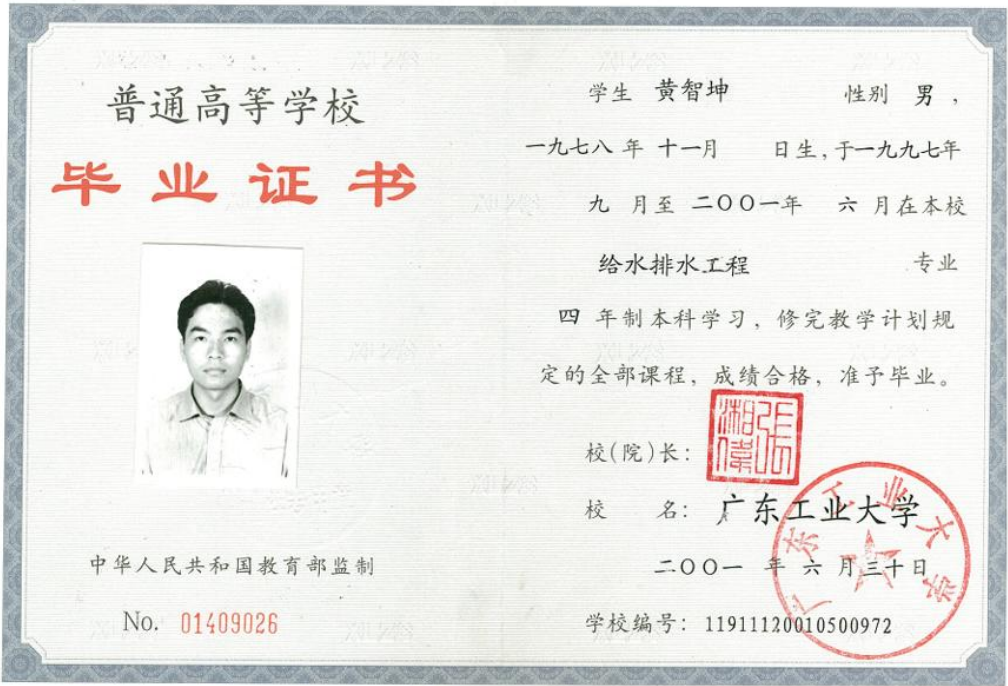 普通高等学校
毕业证书
中华人民共和国教育部监制
No. 01409026
学生 黄智坤 性别 男，
一九七八 年 十一月 日生，于一九九七年
九 月至 二〇〇一年 六 月在本校
给水排水工程 专业
四 年制本科学习，修完教学计划规
定的全部课程，成绩合格，准予毕业。
校(院)长：
张湘伟
校 名：广东工业大学
广东工业大学
二〇〇一 年 六 月三十日
学校编号：11911120010500972